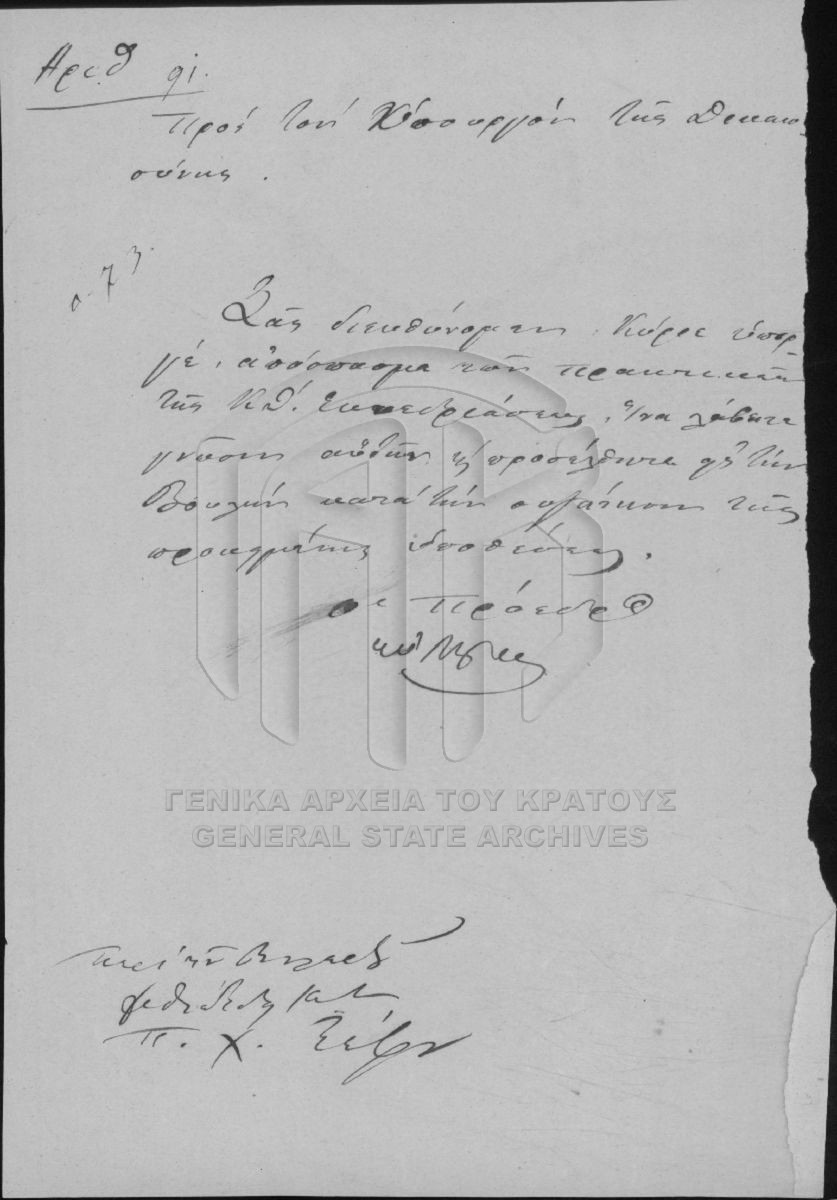 Αριθ 91.
Πρός τόν Υπουργόν της Δικαιο
σύνης.
Σας διευθύνομεν, Κύριε υπουρ-
γέ, απόσπασμα των πρακτικών
της ΚΘ. Συνεδριάσεως, ίνα λάβητε
γνώσιν αυτών και προσέλθητε εις την
Βουλήν κατά την συζήτησιν της
προκειμένης υποθέσεως.
Ο Πρόεδρο
ΓΕΝΙΚΑ ΑΡΧΕΙΑ ΤΟΥ ΚΡΑΤΟΥΣ
GENERAL STATE ARCHIVES
Π. Χ.